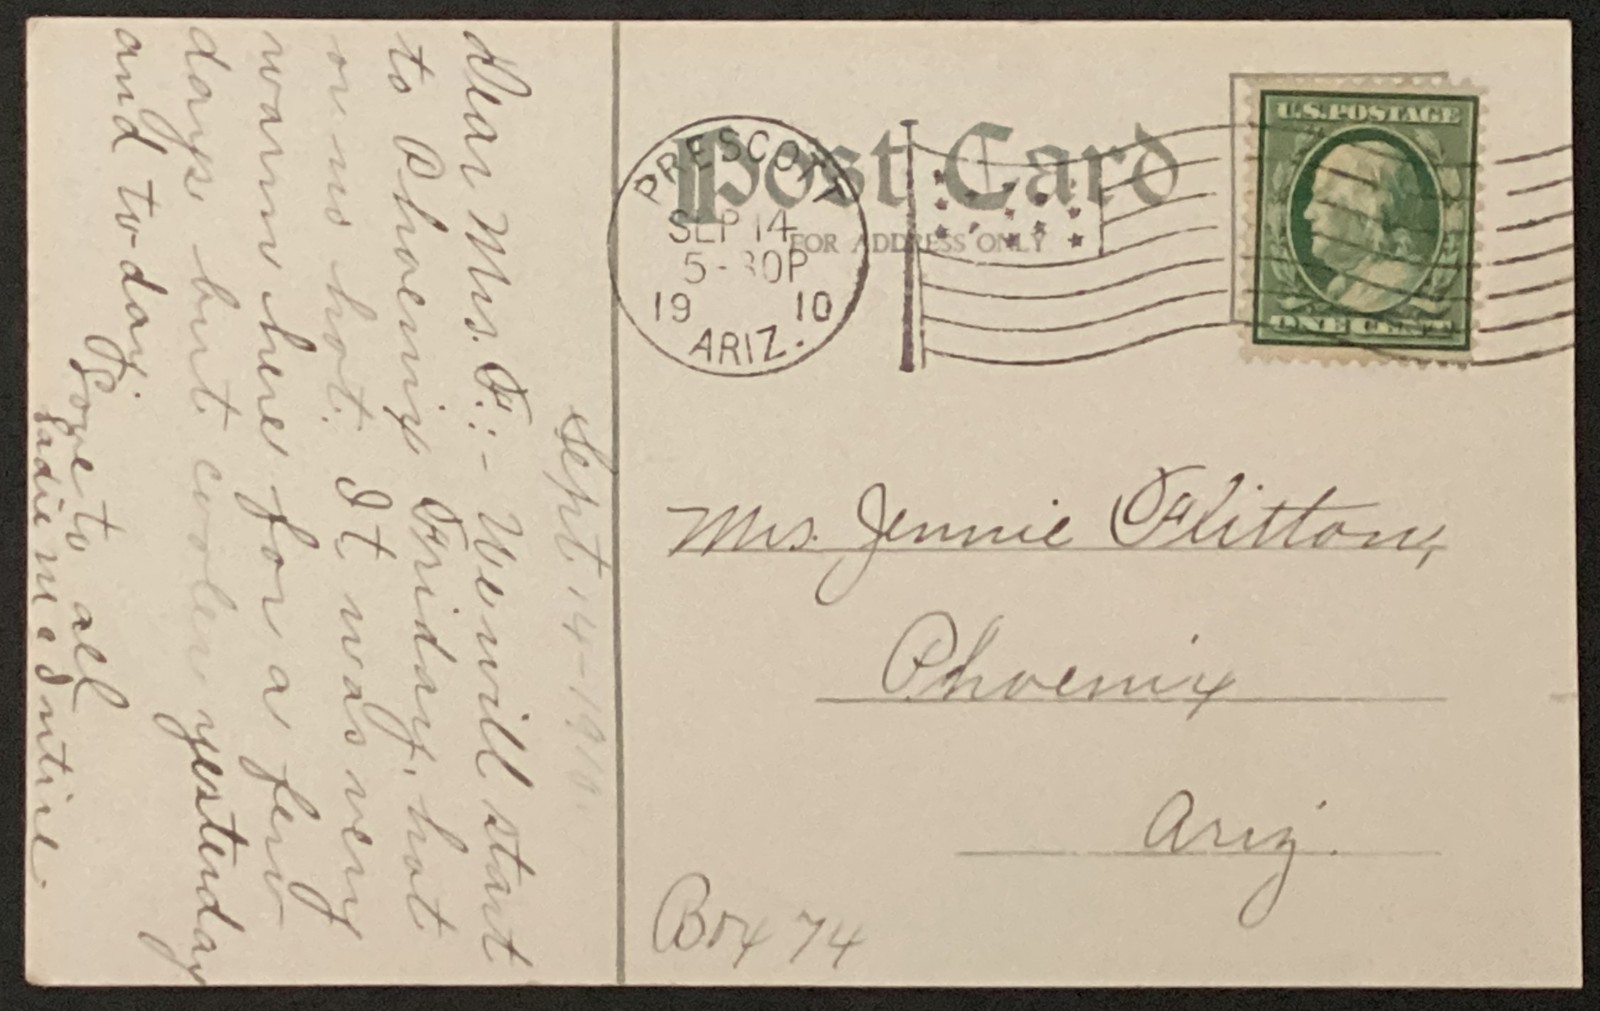 Sept. 14 - 1910.
Dear Mrs. F.:- We will start
to Phoenix Friday, hot
or no hot. It was very
warm here for a few
days but cooler yesterday
and to-day.
Love to all
Sadie McIntire.
Post Card
FOR ADDRESS ONLY
PRESCOTT
SEP 14
5-30P
1910
ARIZ.
U.S. POSTAGE
ONE CENT
Mrs. Jennie Flitton,
Phoenix
Ariz.
Box 74